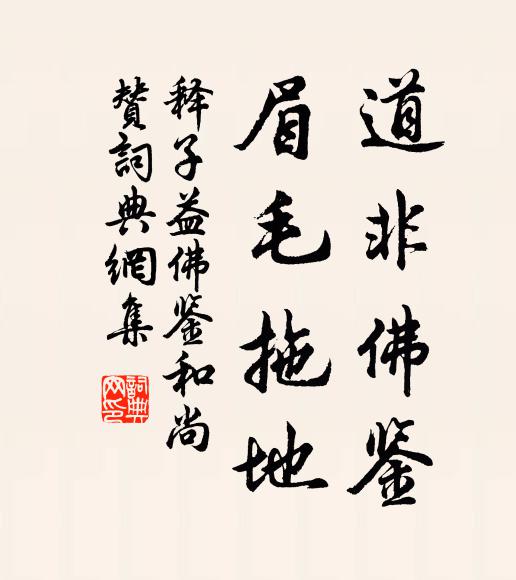 道非佛鉴
眉毛拖地
释子益佛鉴和尚
赞詞典網集
詞典网印